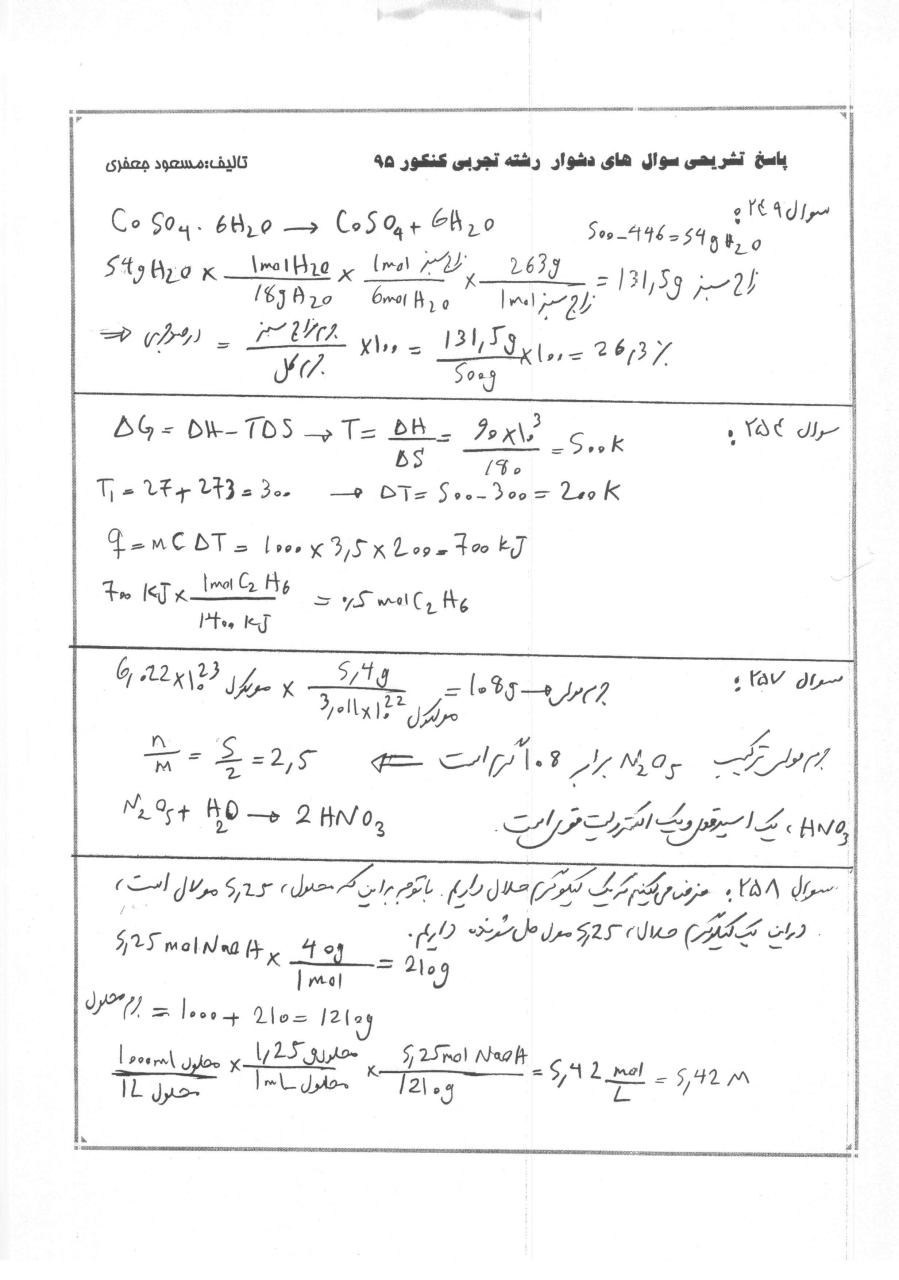 پاسخ تشریحی سوال های دشوار رشته تجربی کنکور ۹۵ تالیف:مسعود جعفری
سوال ۲۴۹:
CoSO4 · 6H2O → CoSO4 + 6H2O 500-446=54gH2O
54gH2O × 1molH2O/18gH2O × 1mol زاج سبز/6molH2O × 263g/1mol زاج سبز = 131,5g زاج سبز
⇒ درصد جرمی = جرم زاج سبز/جرم کل ×100 = 131,5g/500g ×100 = 26,3%
سوال ۲۵۴:
ΔG = ΔH - TΔS → T = ΔH/ΔS = 90×10^3/180 = 500K
T1 = 27 + 273 = 300 → ΔT = 500-300 = 200K
q = mCΔT = 1000 × 3,5 × 200 = 700 kJ
700 kJ × 1mol C2H6/1400 kJ = ۰/5 mol C2H6
سوال ۲۵۷:
6,022×10^23 مولکول × 5,4g/3,011×10^22 مولکول = 108g → جرم مولی
جرم مولی ترکیب N2O5 برابر 108 گرم است ⇐ n/m = 5/2 = 2,5
N2O5 + H2O → 2HNO3
HNO3، یک اسید قوی و یک الکترولیت قوی است.
سوال ۲۵۸: فرض می‌کنیم که یک کیلوگرم حلال داریم. با توجه به این که محلول، 5,25 مولال است،
در این یک کیلوگرم حلال، 5,25 مول حل شونده داریم.
5,25 mol NaOH × 40g/1mol = 210g
جرم محلول = 1000 + 210 = 1210g
1000ml محلول/1L محلول × 1,25g محلول/1mL محلول × 5,25mol NaOH/1210g = 5,42 mol/L = 5,42 M